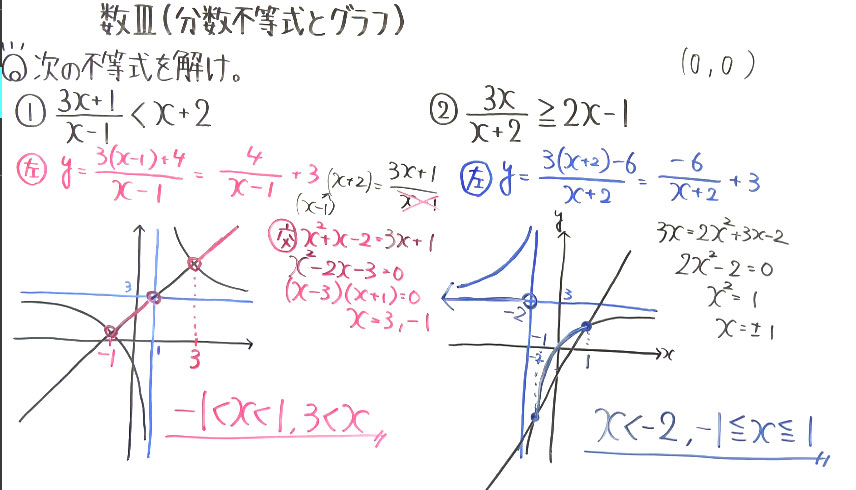 数Ⅲ(分数不等式とグラフ)
次の不等式を解け。
(0,0)
① (3x+1)/(x-1) < x+2
左 y = (3(x-1)+4)/(x-1) = 4/(x-1) + 3
(x+2) = (3x+1)/(x-1)
(x-1)
交 x²+x-2=3x+1
x²-2x-3=0
(x-3)(x+1)=0
x=3,-1
3
-1
1
3
-1<x<1, 3<x
② 3x/(x+2) ≧ 2x-1
左 y = (3(x+2)-6)/(x+2) = -6/(x+2) + 3
3x=2x²+3x-2
2x²-2=0
x²=1
x=±1
y
3
-2
-1
-2
1
x
x<-2, -1≦x≦1